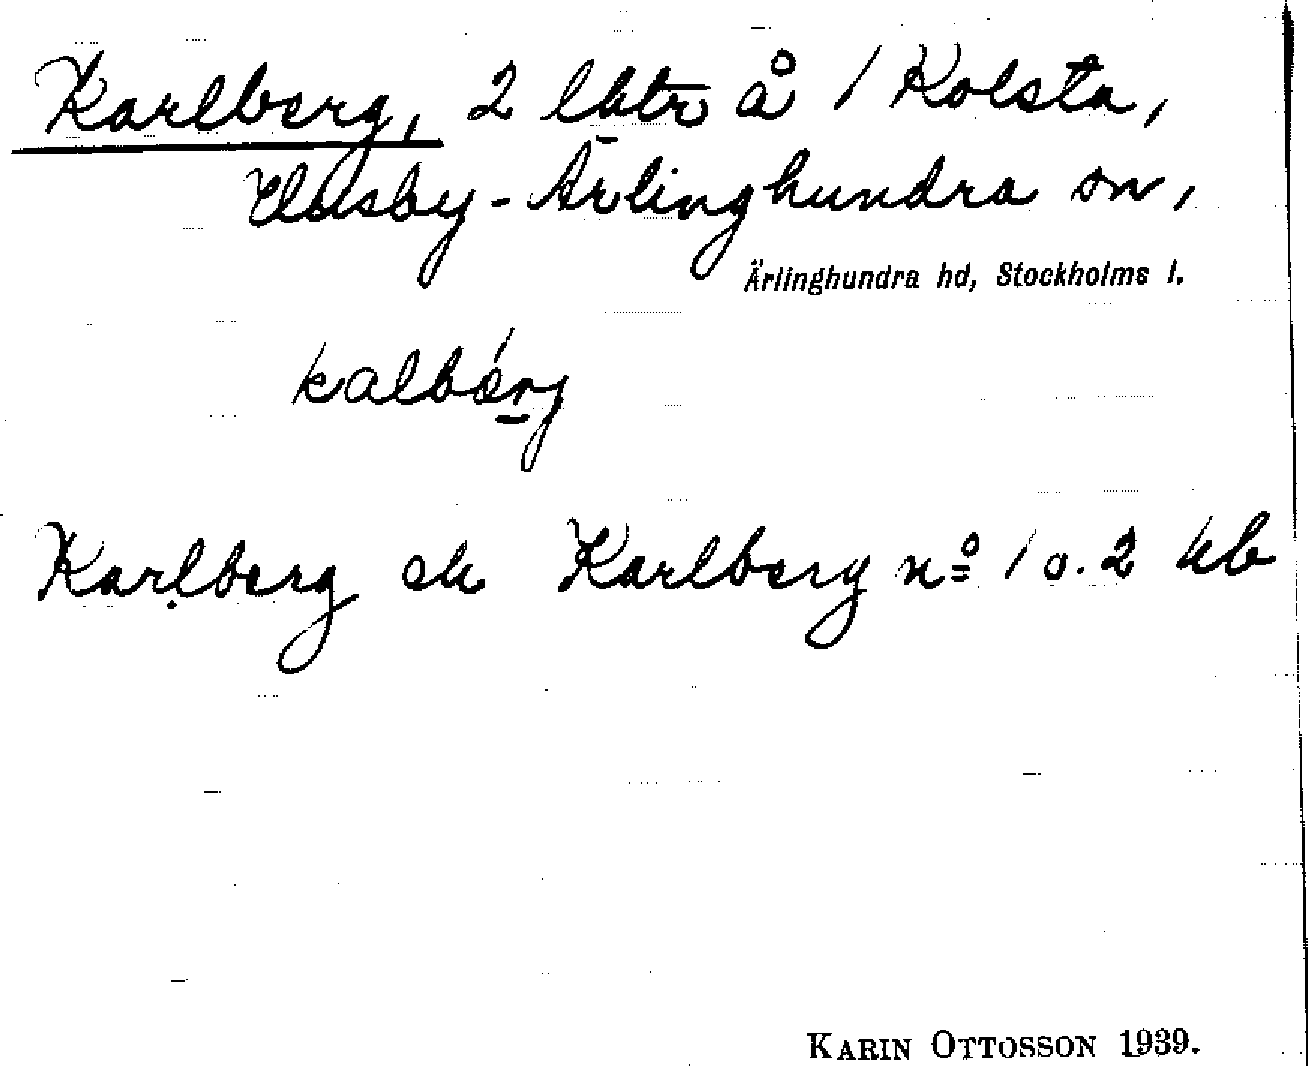 Karlberg, 2 lhtr å 1 Kolsta,
Husby-Ärlinghundra sn,
Ärlinghundra hd, Stockholms l.
kalbærj
Karlberg ek Karlberg nº 1 o. 2 kb
KARIN OTTOSSON 1939.